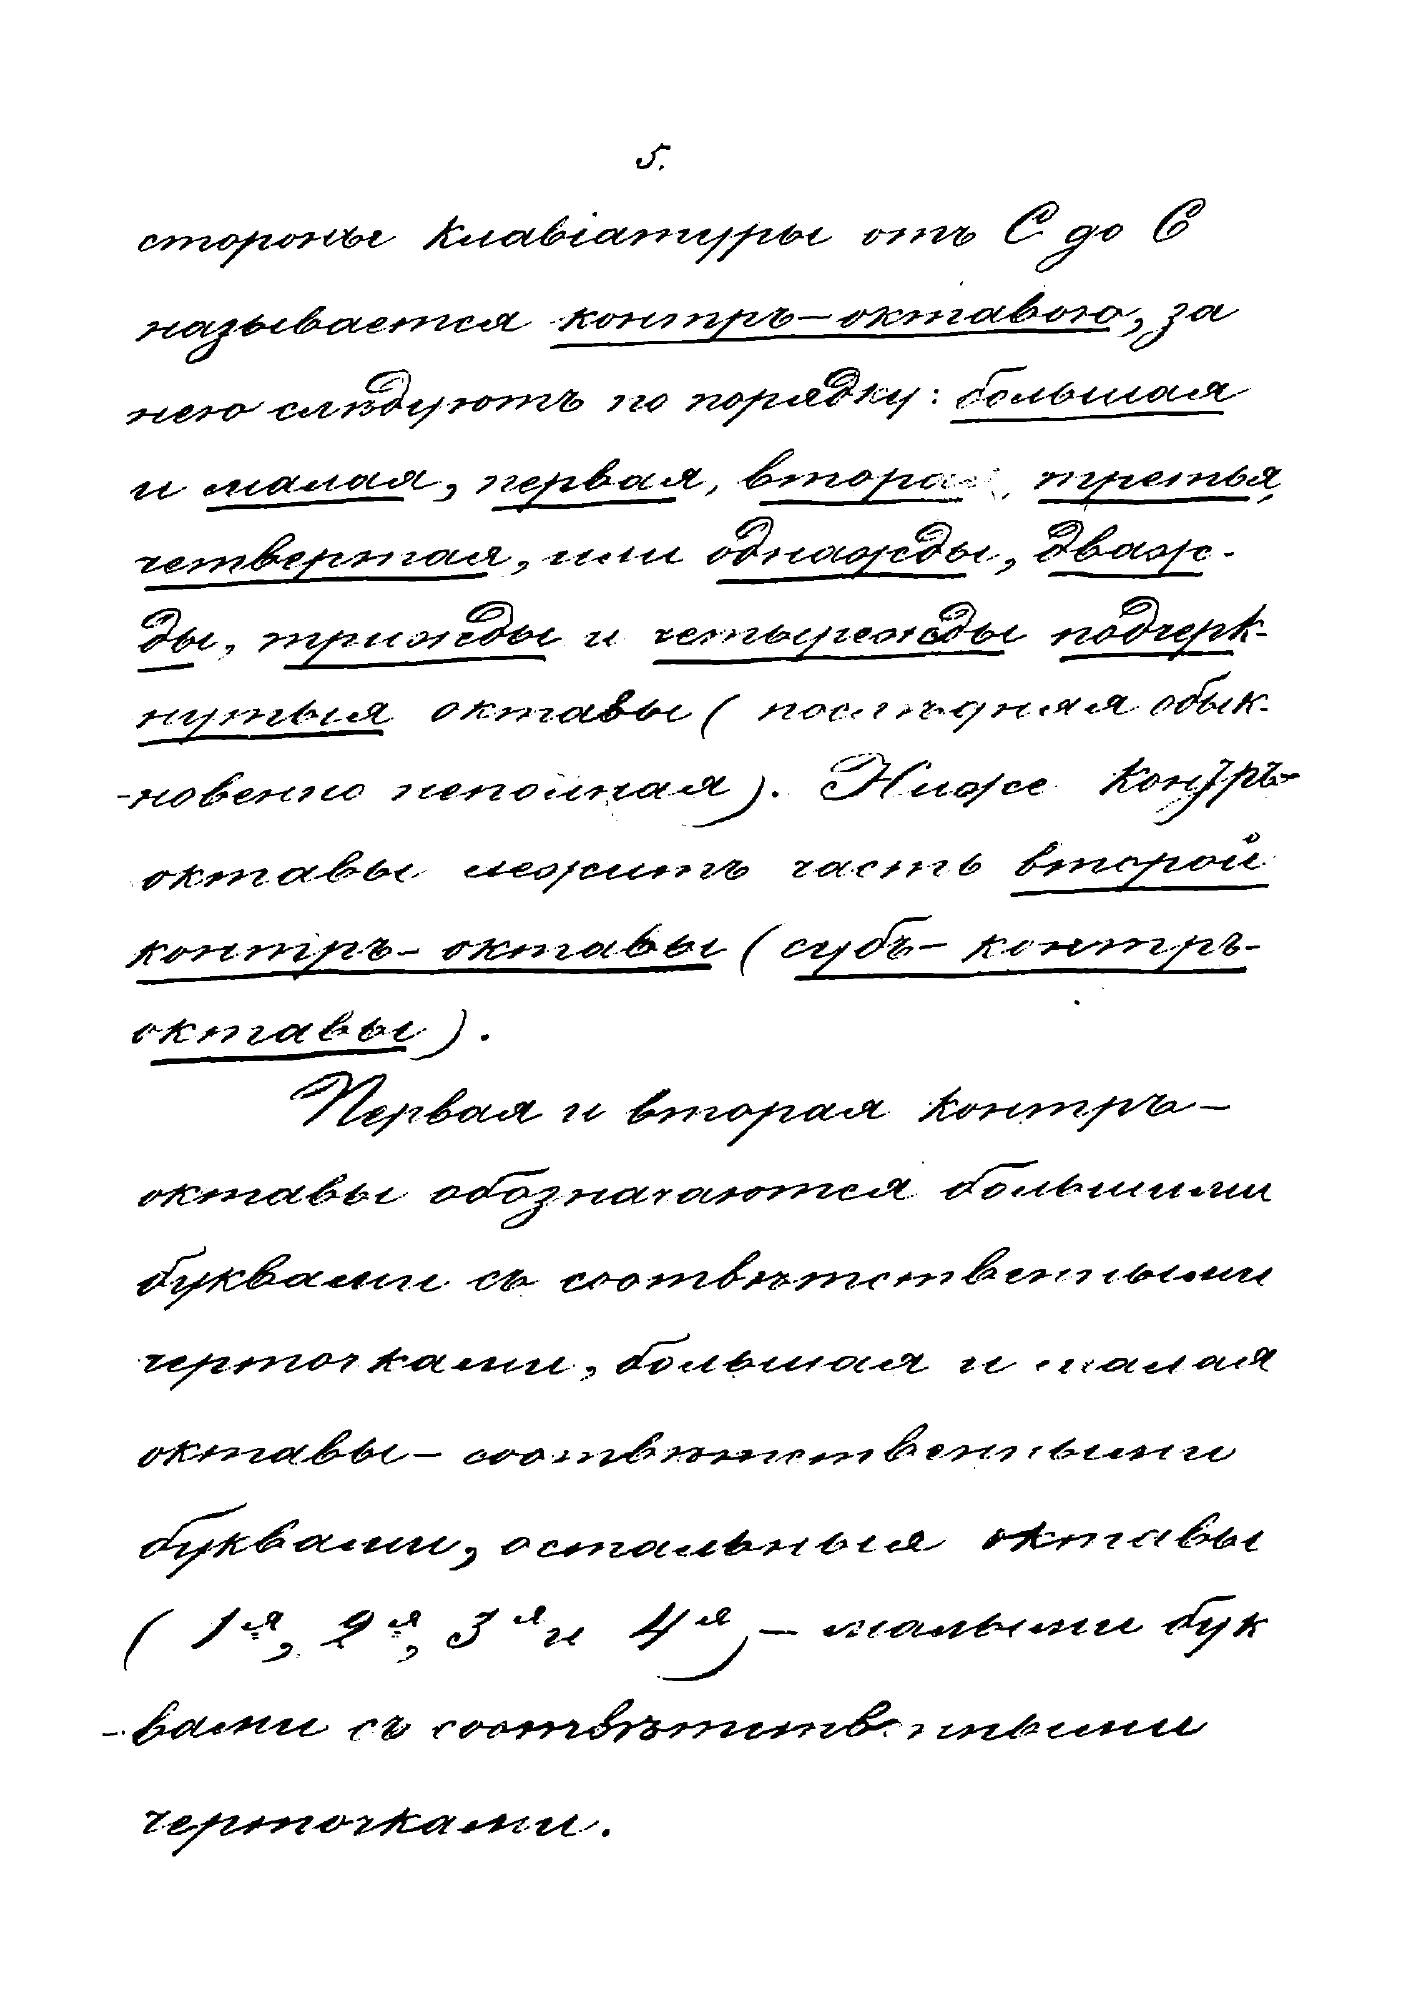 5.
сторонѣ клавіатуры отъ C до C
называется контръ-октавою, за
нею слѣдуютъ по порядку: большая
и малая, первая, вторая, третья,
четвертая, или однажды, дваж-
ды, трижды и четырежды подчерк-
нутыя октавы (послѣдняя обык-
-новенно неполная). Ниже контръ-
октавы лежитъ часть второй
контръ-октавы (субъ-контръ-
октавы).
Первая и вторая контръ-
октавы обозначаются большими
буквами съ соотвѣтственными
черточками, большая и малая
октавы - соотвѣтственными
буквами, остальныя октавы
(1я, 2я, 3я и 4я) - малыми бук
-вами съ соотвѣтственными
черточками.